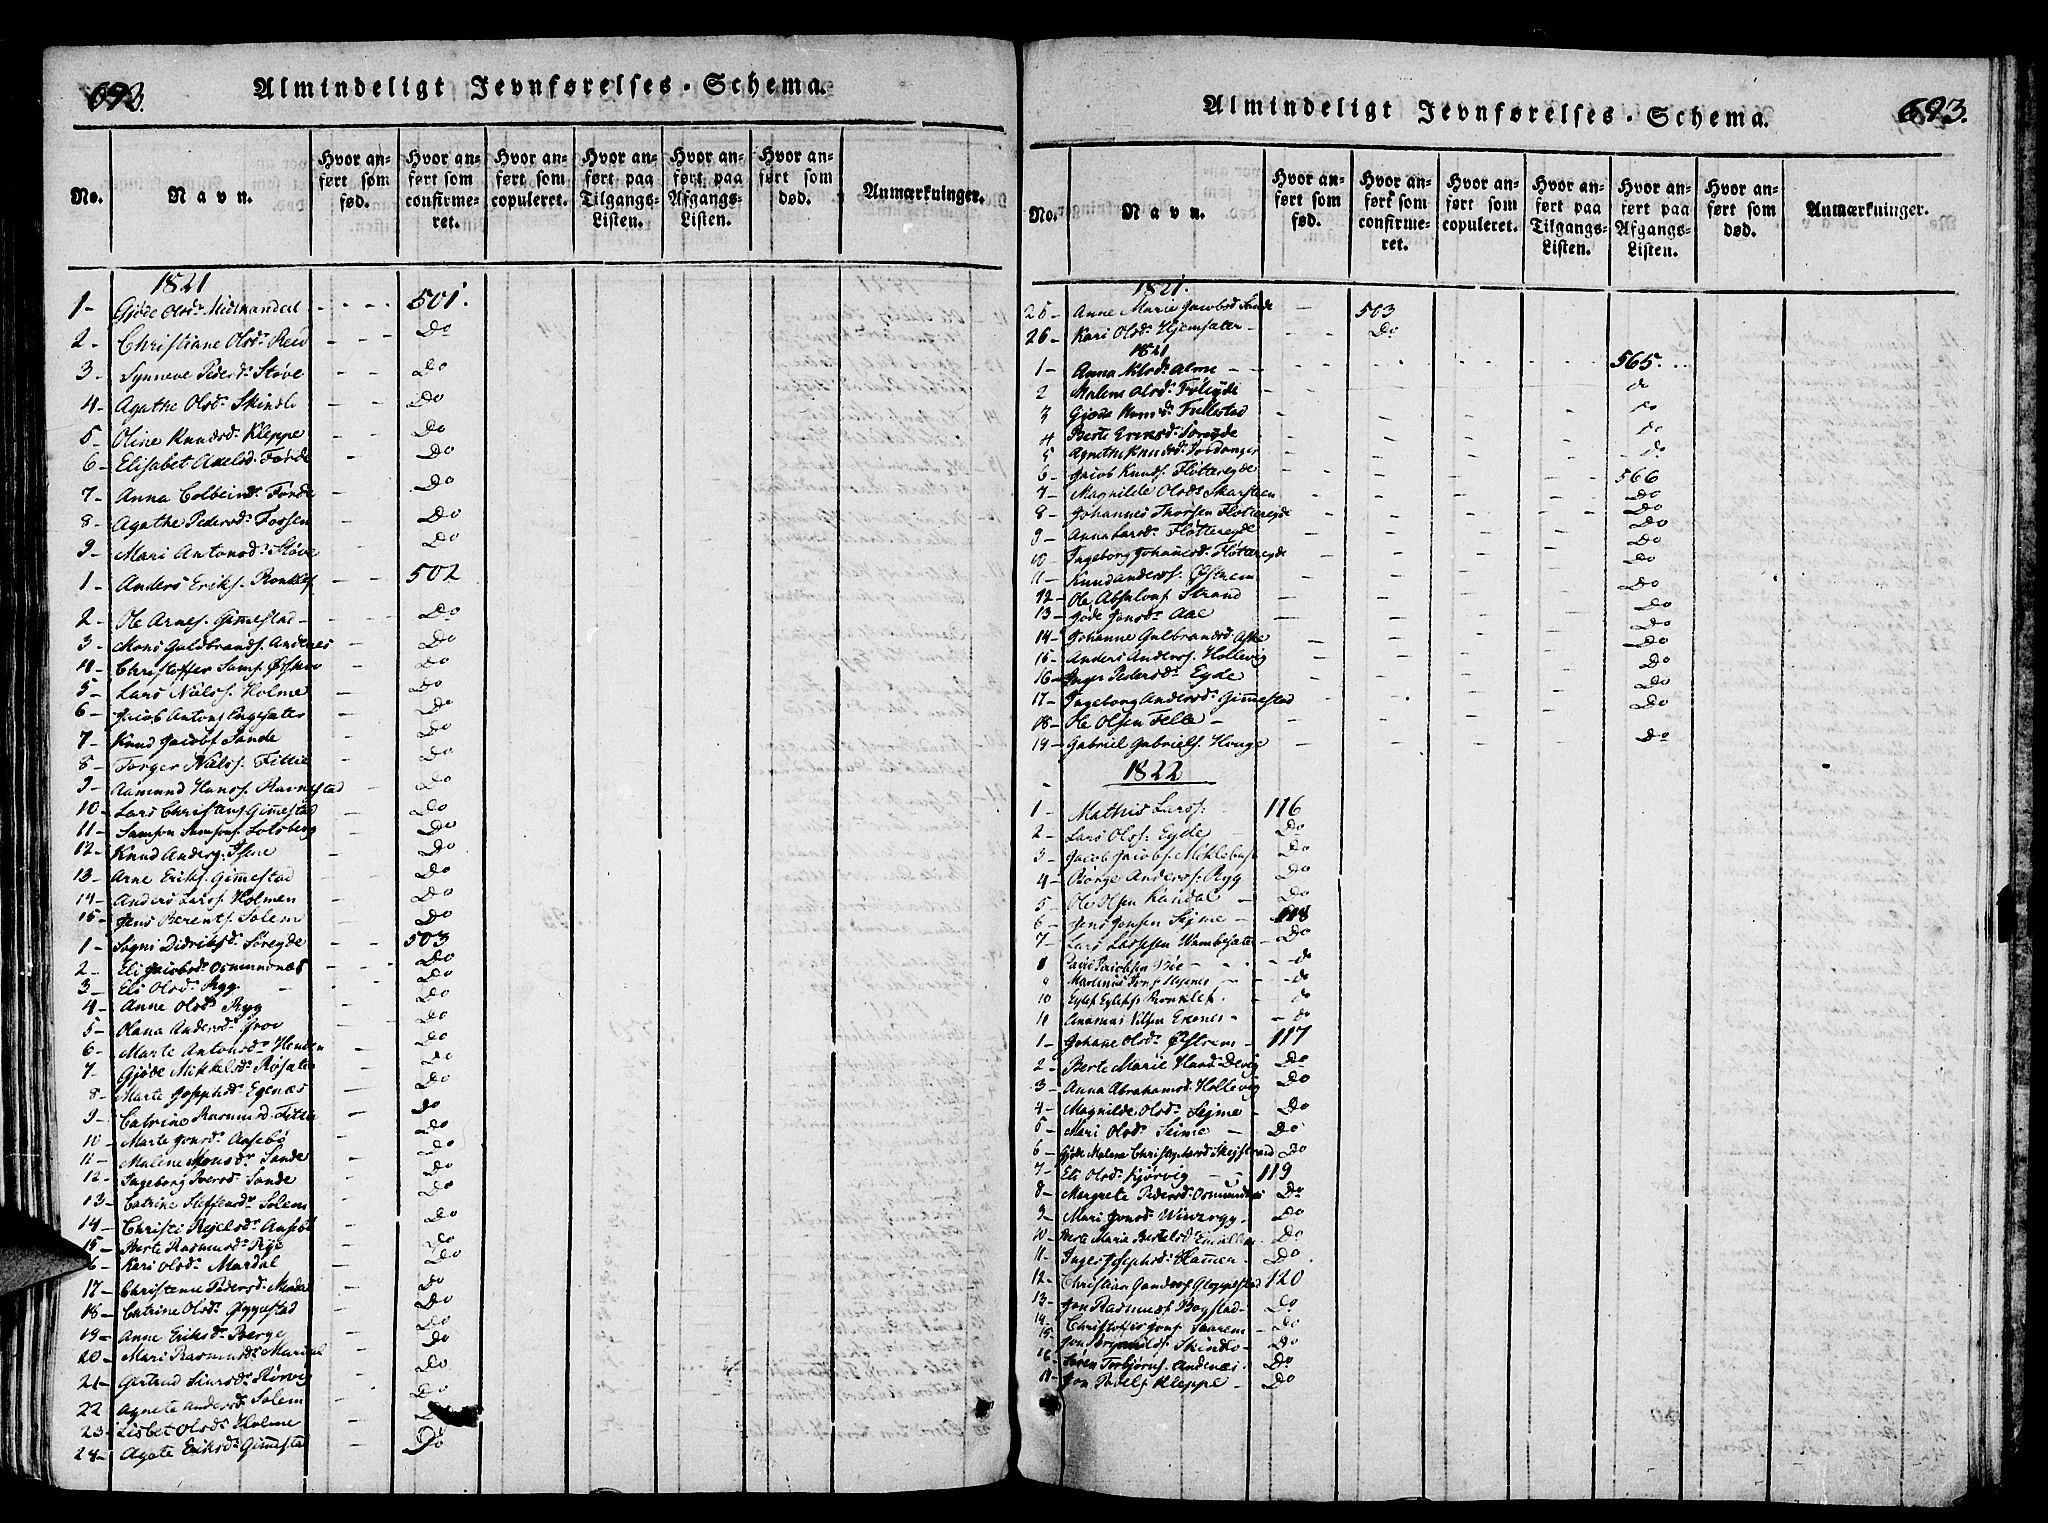 692.
Almindeligt Jevnførelses-Schema.
No.
Navn.
Hvor anført som fød.
Hvor anført som confirmeret.
Hvor anført som copuleret.
Hvor anført paa Tilgangs-Listen.
Hvor anført paa Afgangs-Listen.
Hvor anført som død.
Anmærkninger.
1821
1- Gjøde Olsdr. 501.
2- Christiane Olsdr. Reed Do
3- Synneve Pedersdr. Støve Do
4- Agathe Olsdr. Skindlo Do
5- Oline Knudsdr. Kleppe Do
6- Elisabet Axelsd. Førde Do
7- Anna Colbeinsdr. Førde Do
8- Agathe Pedersdr. Fossen Do
9- Mari Antonsdr. Støve Do
1- Anders Eriks. Ronklef 502
2- Ole Arnes. Gimestad Do
3- Mons Guldbrands. Andenes Do
4- Christoffer Sams. Do
5- Lars Niels. Holme Do
6- Jacob Antons. Engesæter Do
7- Knud Jacobs. Sande Do
8- Torger Niels. Fittie Do
9- Aamund Hans. Ravnestad Do
10- Lars Christens. Gimestad Do
11- Samson Samsons. Lotsberg Do
12- Knud Anders. Isene Do
13- Arne Eriks. Gimestad Do
14- Anders Lars. Holmen Do
15- Jens Berents. Solem Do
1- Sogni Didriksdr. Søreyde 503
2- Eli Jacobsdr. Osmundnæs Do
3- Eli Olsdr. Ryg Do
4- Anne Olsdr. Ryg Do
5- Olana Andersdr. Grov Do
6- Marte Antonsdr. Henden Do
7- Gjøde Mikkelsdr. Røsæter Do
8- Marte Josephsd. Egenæs Do
9- Catrine Rasmusd. Fittie Do
10- Marte Jonsdr. Ansebø Do
11- Malene Monsdr. Sande Do
12- Ingeborg Iversdr. Sande Do
13- Catrine Steffensdr. Solem Do
14- Christi Rejelsdr. Ansebø Do
15- Berte Rasmusdr. Rye Do
6- Kari Olsdr. Mardal Do
17- Christense Pedersdr. Do
18- Catrine Olsdr. Eggestad Do
19- Anne Eriksdr. Berge Do
20- Mari Rasmusdr. Mardal Do
21- Gertrud Rørvig Do
22 Agnete Andersdr. Solem Do
23- Lisbet Olsdr. Holme
24- Agate Eriksdr. Gimestad Do
693.
Almindeligt Jevnførelses-Schema.
No.
Navn.
Hvor anført som fød.
Hvor anført som confirmeret.
Hvor anført som copuleret.
Hvor anført paa Tilgangs-Listen.
Hvor anført paa Afgangs-Listen.
Hvor anført som død.
Anmærkninger.
1821.
25- Anne Marie Jacobsd. Sande 503
26- Kari Olsdr. Hjemsæter Do
1821
1- Anna Alme 565.
2 Malene Olsdr. do
3 Gjøde do
4 Berte Eriksdr. Søreyde do
5 Agnethe Knudsdr. do
6- Jacob Knuds. Fløttereyde 566
7- Magnilde Olsdr. Skarsteen Do
8- Johannes Thorsen Fløttereyde Do
9- Anna Larsdr. Fløttereyde Do
10 Ingeborg Johansdr. Fløttereyde Do
11- Knud Anders. Østrem Do
12- Ole Absalons. Strand Do
13- Gjøde Jonsdr. Aae Do
14- Johanne Gulbrandsd. Do
15- Anders Anders. Hollevig Do
16- Inger Pedersdr. Eyde Do
17- Ingeborg Andersdr. Gimmestad Do
18- Ole Olsen Felle Do
19- Gabriel Gabriels. Houge Do
1822
1- Mathis Lars. 116
2- Lars Ols. Eyde Do
3- Jacob Jacobs. Myklebust Do
4- Børge Anders. Ryg Do
5- Ole Olsen Kandal Do
6- Jens Jensen Sejme 118
7- Lars Larsen Do
8 do
9 do
10 Eylef Eylefs. Ronklef. do
11 Nilsen do
1- Johane Olsdr. Østrem 117
2- Berte Marie Hansd. Devig Do
3- Anna Abrahamsd. Hollevig Do
4- Magnilde Olsdr. Sejme Do
5- Mari Olsdr. Seime Do
6- Gjøde Malena Do
7- Eli Olsdr. Kjørvig 119
8- Margrete Pedersd. Osmundnæs Do
9- Mari Jonsdr. Do
10- Berte Maria Bertelsd. Do
11- Inger Josephsdr. Hammen Do.
12- Christian Gloppestad 120
13- Jon Rasmus. Bogstad Do
14- Christoffer Jons. Do
15- Jon Skindlo Do
16- Søren Torbjørns. Andenæs. Do
17- Jon Povels. Kleppe Do